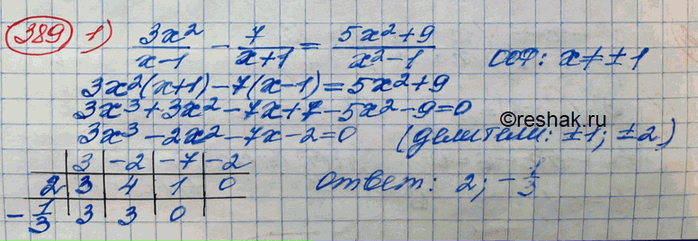 389 1) 3x²/(x-1) - 7/(x+1) = (5x²+9)/(x²-1) ООФ: x≠±1
3x²(x+1)-7(x-1)=5x²+9
3x³+3x²-7x+7-5x²-9=0
3x³-2x²-7x-2=0 (делители: ±1; ±2)
3 | -2 | -7 | -2
2 | 3 | 4 | 1 | 0
-1/3 | 3 | 3 | 0
ответ: 2; -1/3
©reshak.ru